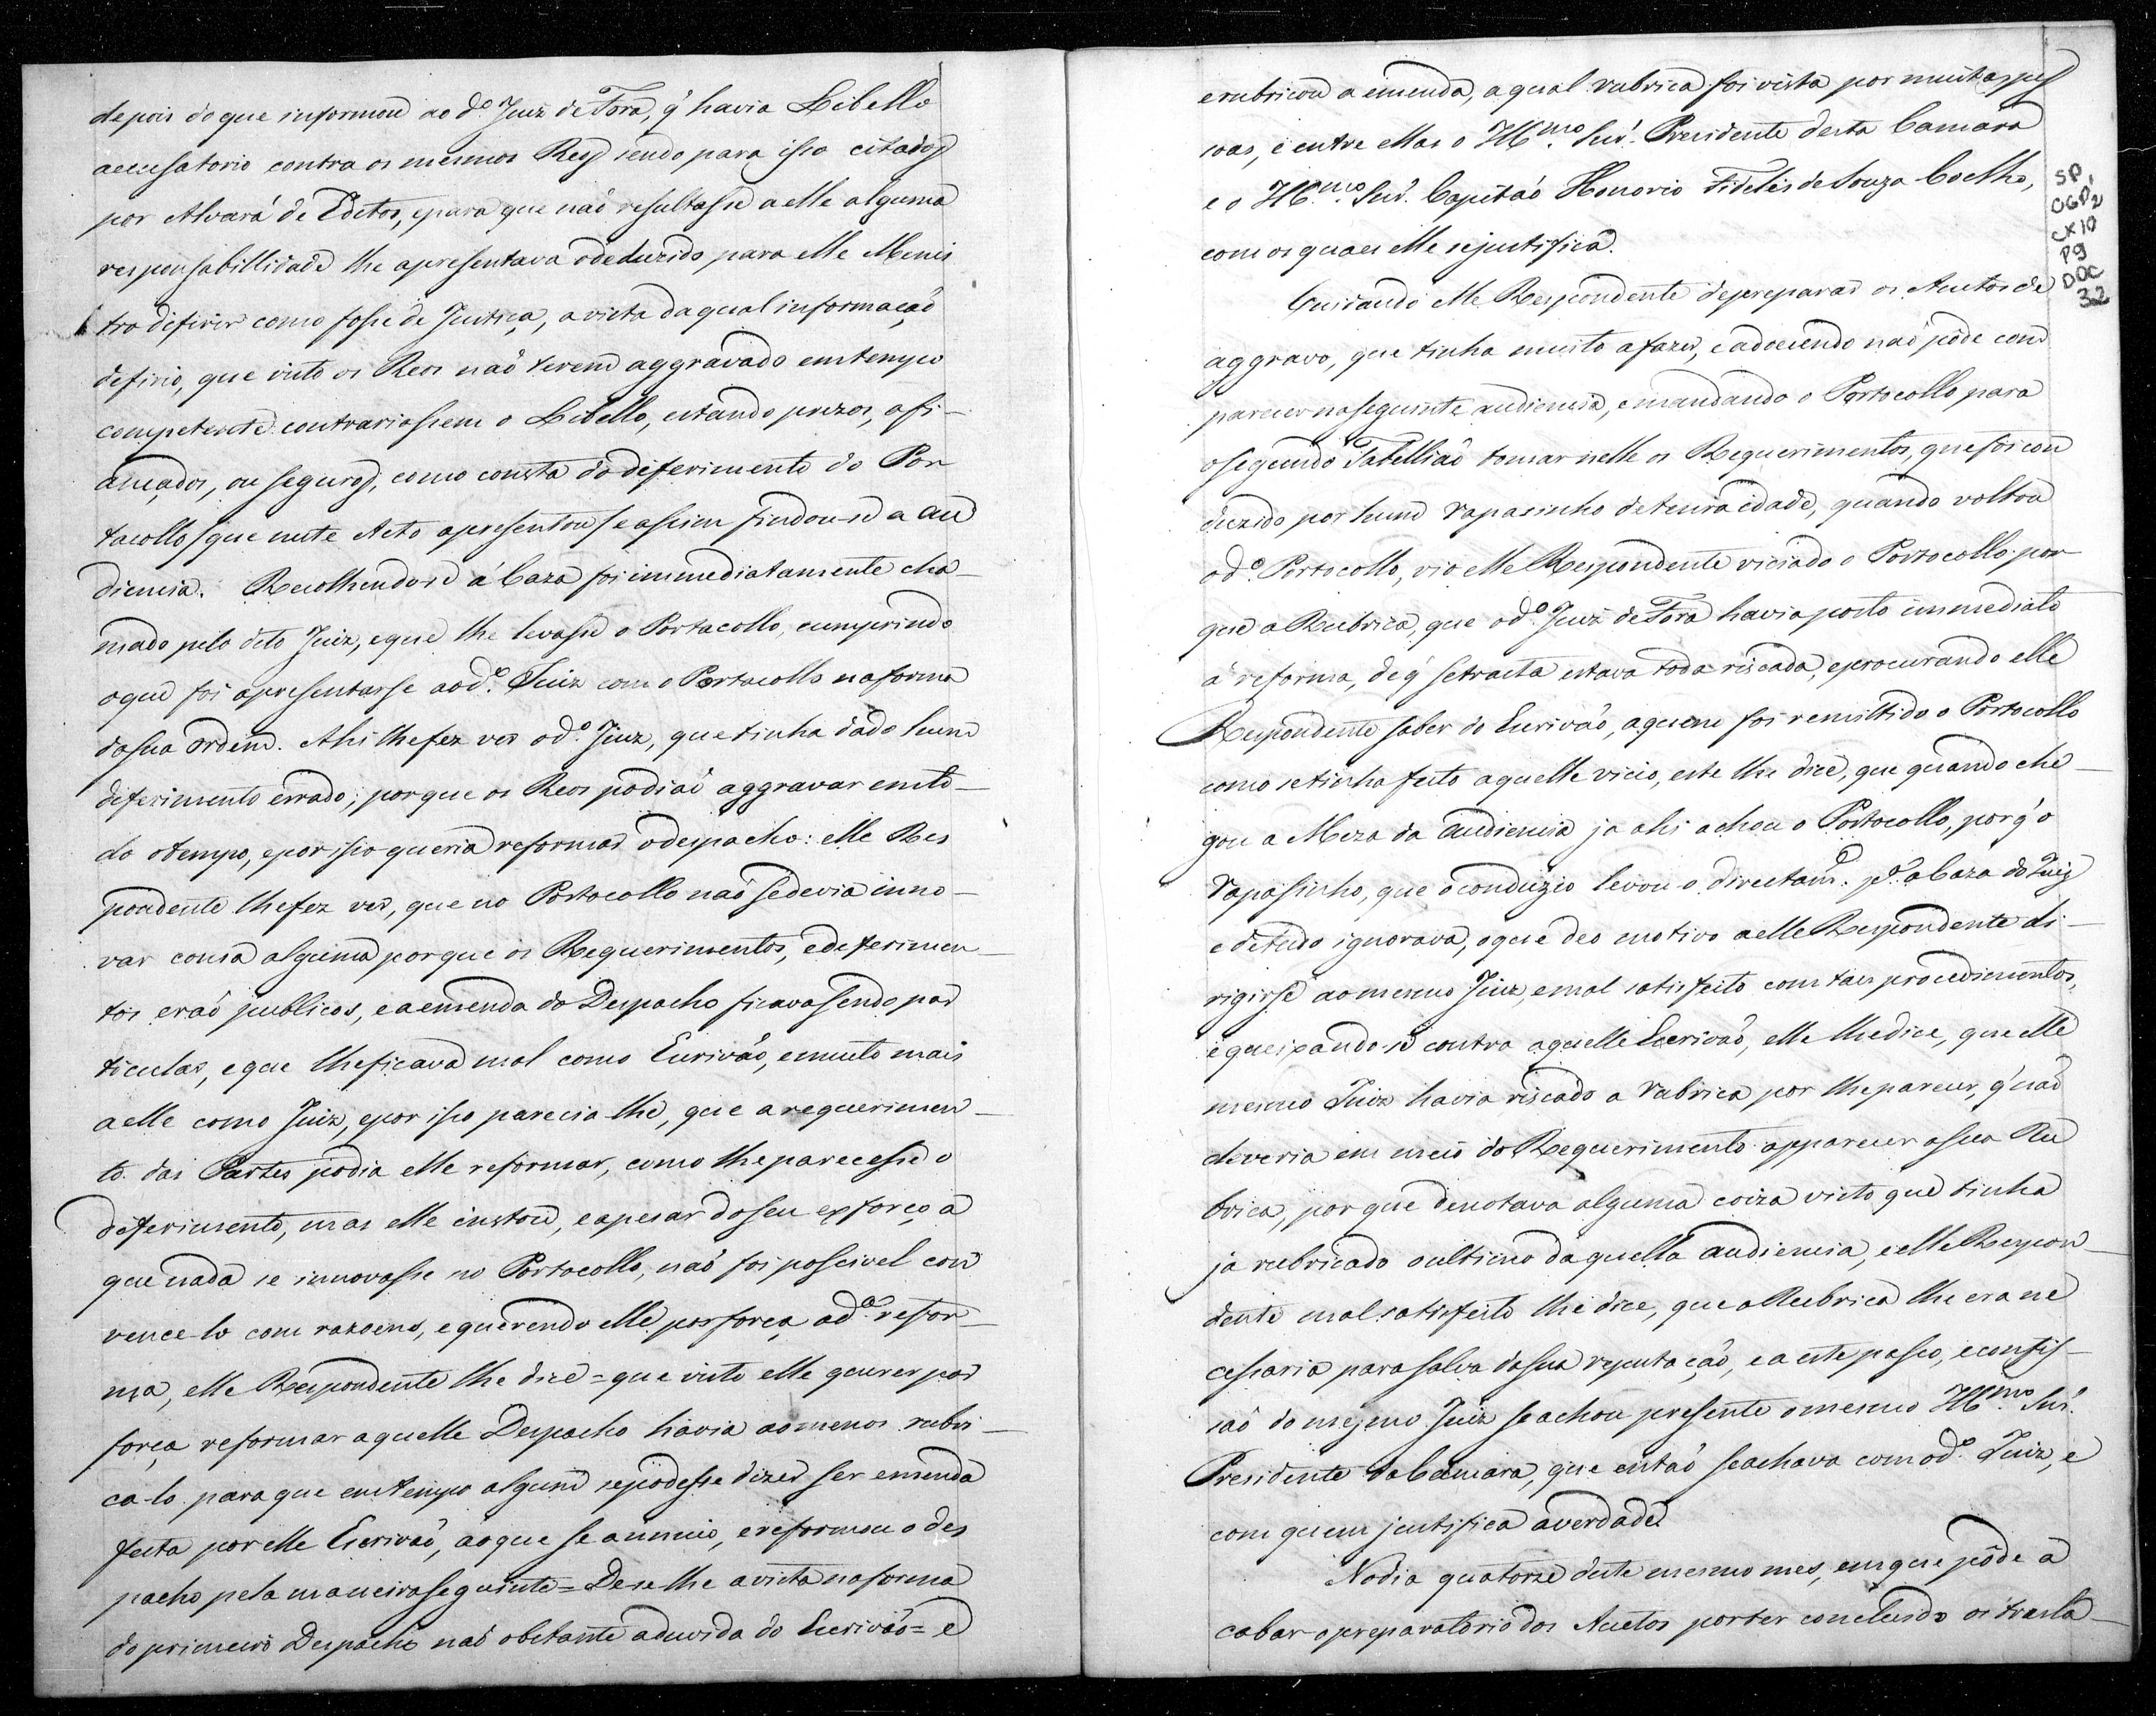 depois do que informou ao d.º Juiz de Fora, q̃ havia Libello
accusatorio contra os mesmos Reos sendo para isso citados
por Alvará de Editos, epara que naõ resultasse a elle alguma
responsabillidade lhe apresentava odeduzido para elle Minis
tro difirir como fosse de Justiça, a vista daqual informaçaõ
defirio, que visto os Reos naõ terem aggravado emtempo
competente contrariassem o Libello, estando prezos, afi-
ançados, ou seguros, como consta do deferimento do Por
tacollo / que neste Acto apresentou / e assim findou-se a au
diencia. Recolhendo-se á Caza foi immediatamente cha-
mado pelo dito Juiz, eque lhe levasse o Portacollo, cumprindo
oque foi apresentarse aod.º Juiz com o Portacollo naforma
dasua Ordem. Ahi lhefez ver od.º Juiz, que tinha dado hum
deferimento errado; porque os Reos podiaõ aggravar emto-
do otempo, epor isso queria reformar odespacho: elle Res
pondente lhefez ver, que no Portocollo naõ sedevia inno-
var cousa alguma porque os Requerimentos, edeferimen-
tos eraõ publicos, eaemenda do Despacho ficava sendo par
ticular, eque lheficava mal como Escrivaõ, emuito mais
aelle como Juiz, epor isso parecia-lhe, que arequerimen-
to das Partes podia elle reformar, como lheparecesse o
deferimento, mas elle instou, eapesar doseu exforço a
que nada se innovasse no Portocollo, naõ foi possivel con
vence-lo com razoens, equerendo elle porforça ad.ª refor-
ma, elle Respondente lhe dice = que visto elle querer por
força reformar aquelle Despacho havia aomenos rubri-
ca-lo para que emtempo algum sepodesse dizer ser emenda
feita por elle Escrivaõ, aoque se annuio, ereformou o des
pacho pela maneiraseguinte = Dese lhe avista naforma
do primeiro Despacho naõ obstante aduvida do Escrivaõ = e
erubricou a emenda, aqual rubrica foi vista por muitas pes
soas, e entre ellas o Ill.mo Snr. Presidente desta Camara
e o Ill.mo Snr. Capitaõ Honorio Fidelis de Souza Coelho,
com os quaes elle sejustifica.
Cuidando elle Respondente depreparar os Autos de
aggravo, que tinha muito afazer, eadoecendo naõ pôde com
parecer naseguinte audiencia, emandando o Portocollo para
osegundo Tabelliaõ tomar nelle os Requerimentos, quefoi con
duzido por hum rapasinho detenra edade, quando voltou
od.º Portocollo, vio elle Respondente viciado o Portocollo por
que a Rubrica, que od.º Juiz de Fora havia posto immediato
á reforma, de q̃ setracta estava toda riscada, eprocurando elle
Respondente saber do Escrivaõ, aquem foi remittido o Portocollo
como setinha feito aquelle vicio, este lhe dice, que quando che-
gou a Meza da Audiencia ja ahi achou o Portocollo, porq̃ o
rapasinho, que oconduzio levou-o directam.e p.ª a Caza do Juiz
e detudo ignorava, oque deo motivo aelle Respondente di-
rigirse aomesmo Juiz, emal satisfeito com taes procedimentos,
equeixando-se contra aquelle Escrivaõ, elle lhedice, que elle
mesmo Juiz havia riscado a rubrica por lheparecer, q̃ naõ
deveria em meio do Requerimento apparecer asua Ru
brica, por que denotava alguma coiza visto que tinha
ja rubricado oultimo daquella audiencia, eelle Respon-
dente mal satisfeito lhe dice, que a Rubrica lhe era ne
cessaria para salva dasua reputaçaõ, ea este passo, econfis-
saõ do mesmo Juiz se achou presente omesmo Ill.mo Snr.
Presidente da Camara, que entaõ seachava com od.º Juiz, e
com quem justifica averdade.
Nodia quatorze deste mesmo mes, emque pôde a
cabar opreparatorio dos Autos porter concluido os trasla-
SP,
OGP2
CX 10
P9
DOC
32